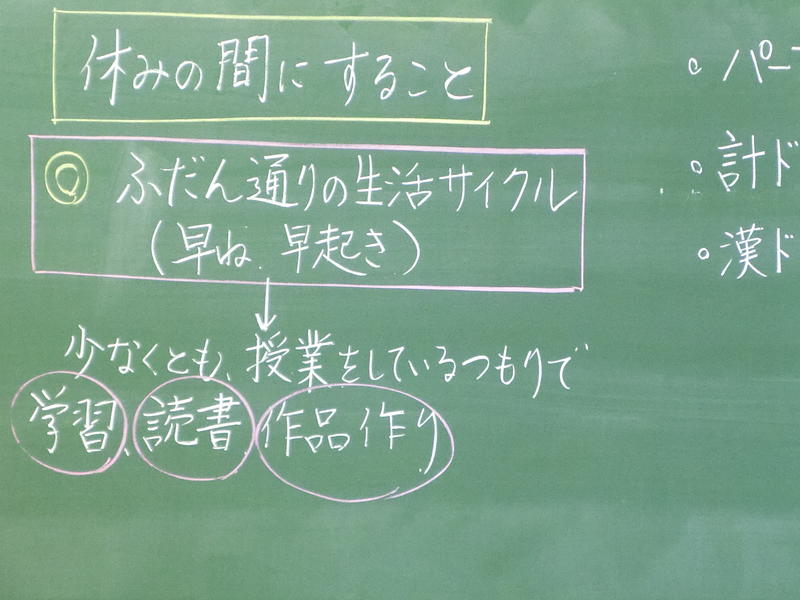 休みの間にすること
◎ ふだん通りの生活サイクル
(早ね、早起き)
↓
少なくとも、授業をしているつもりで
学習、読書、作品作り
。パー
。計ド
。漢ド